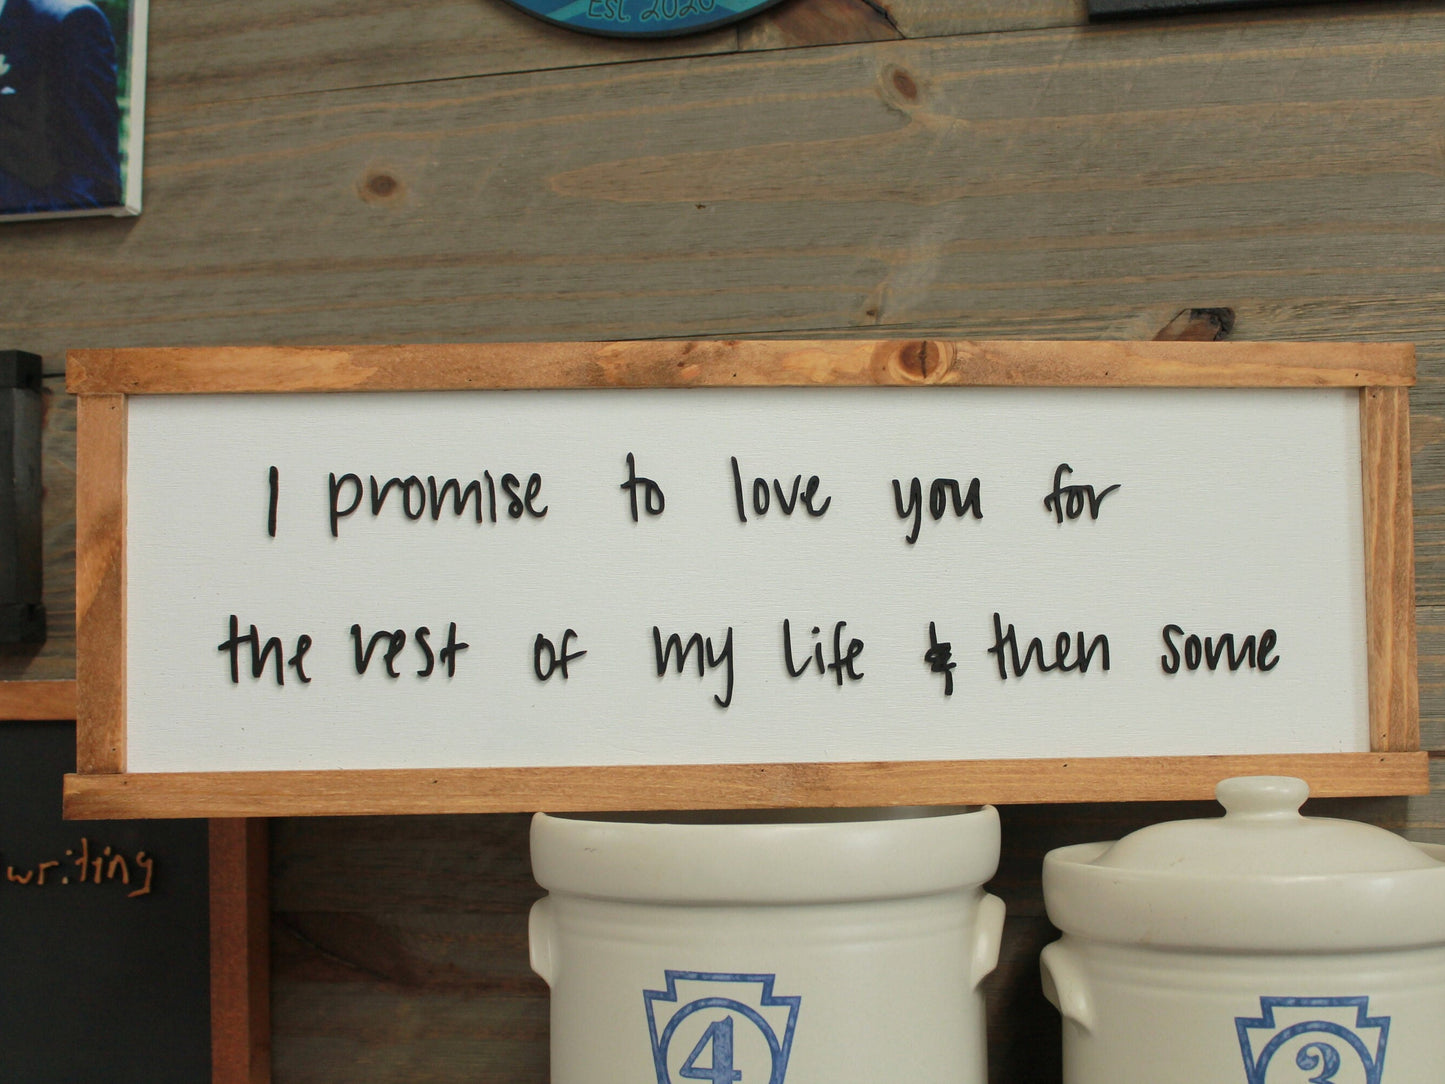 Est. 2020
I promise to love you for
the rest of my life & then some
writing
4
3